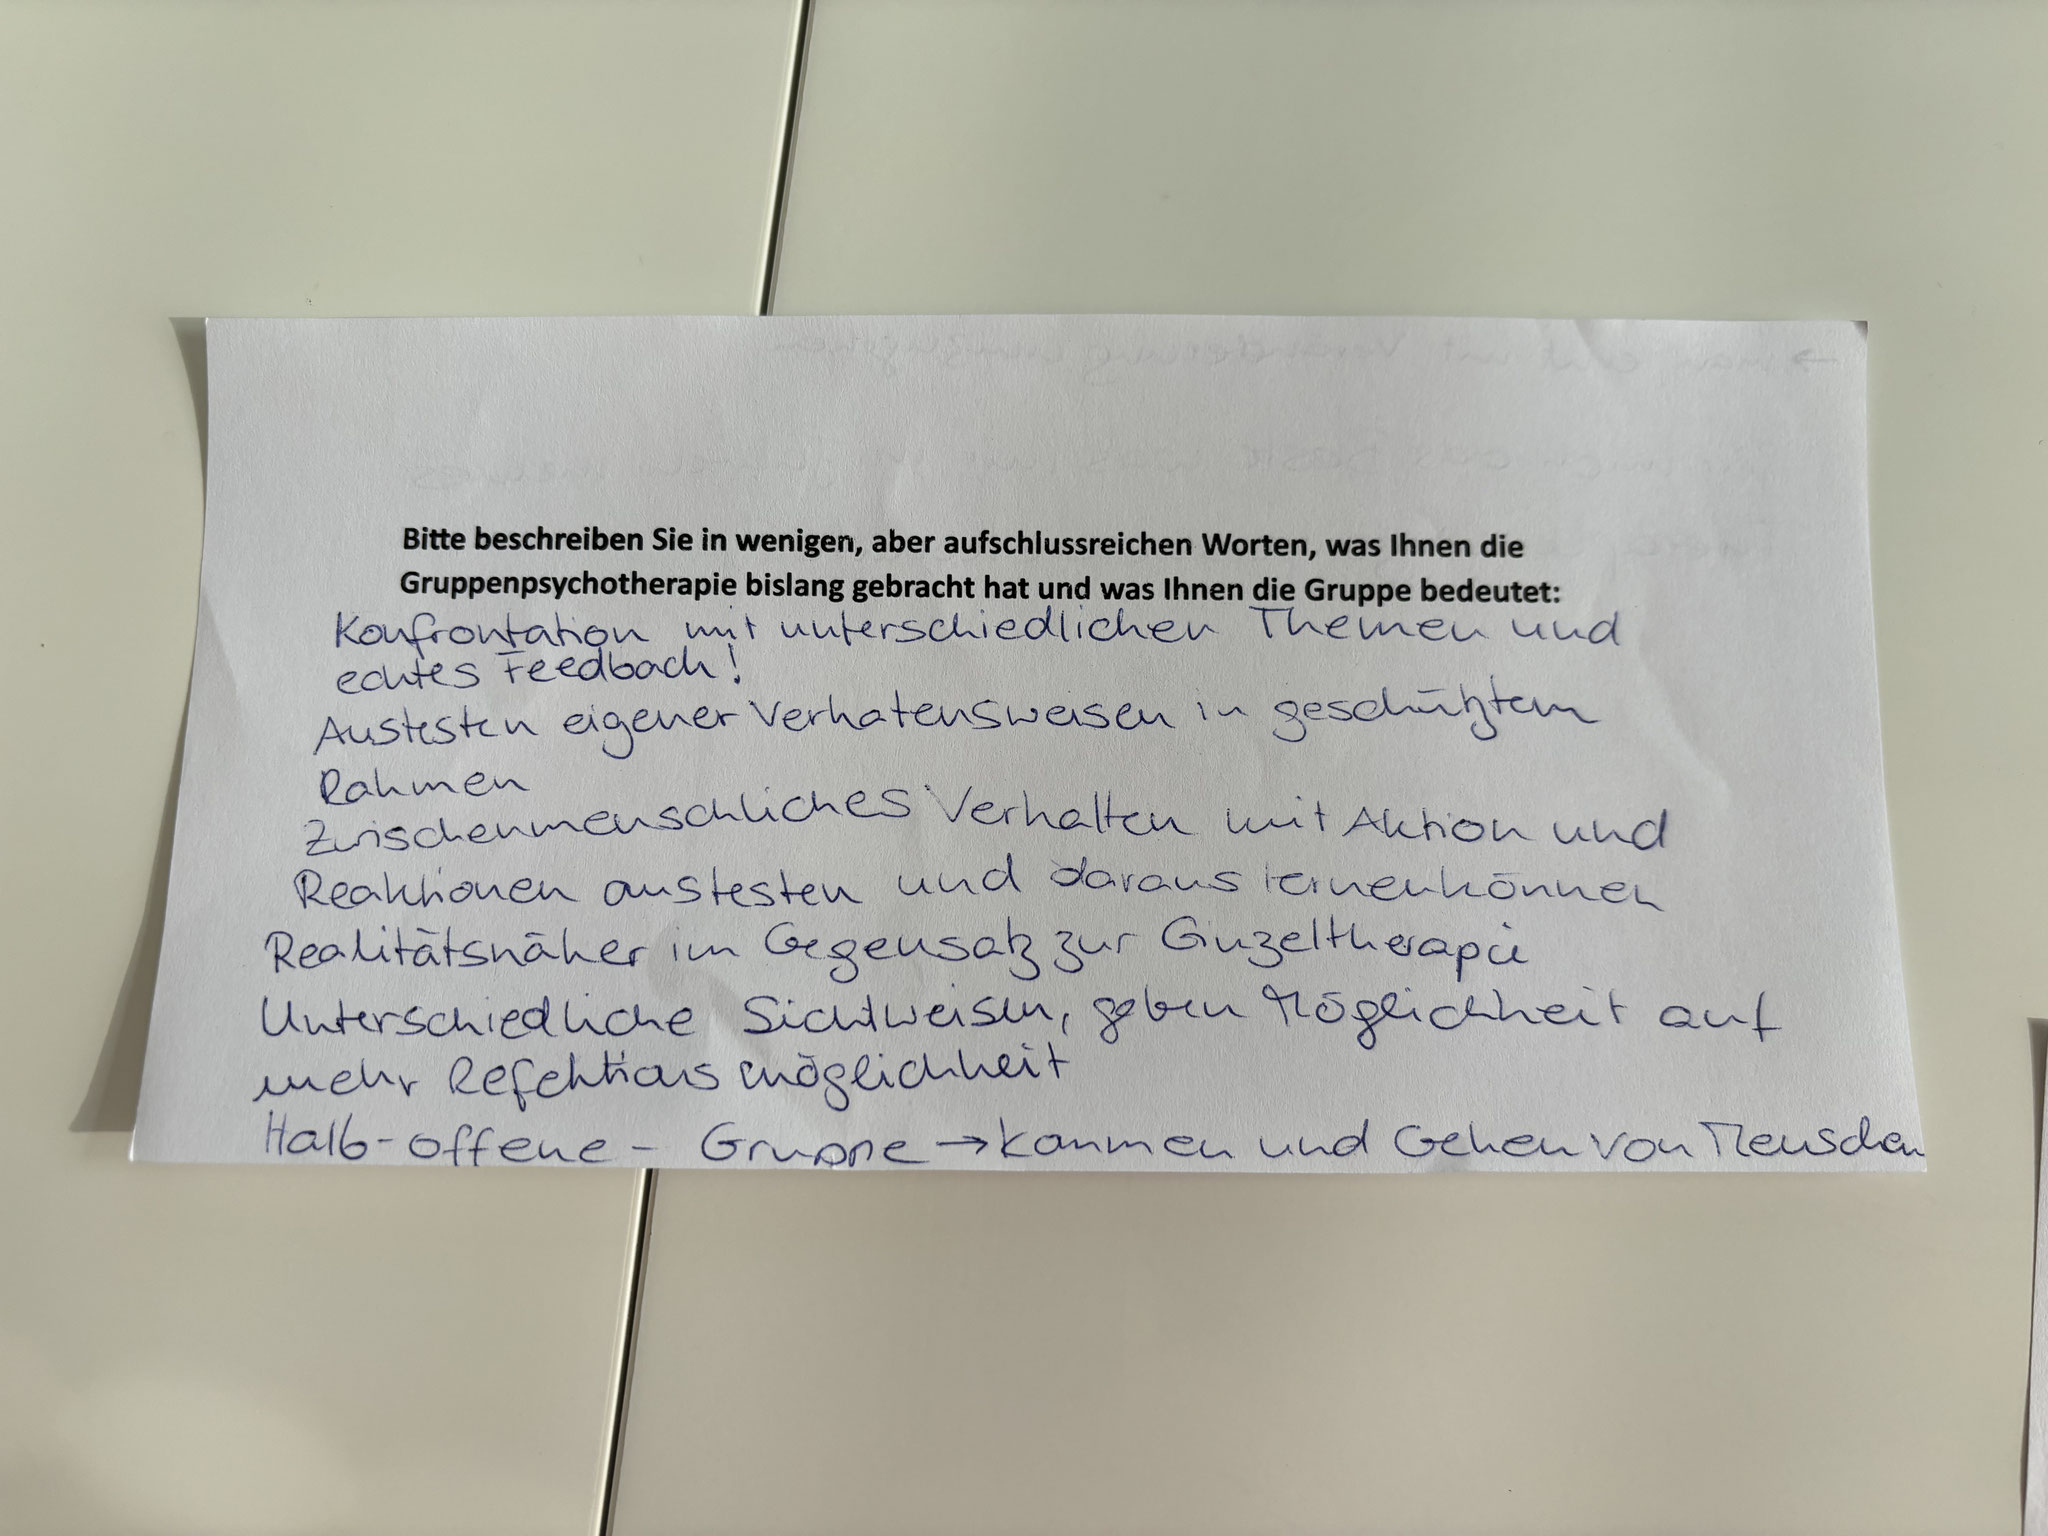 Bitte beschreiben Sie in wenigen, aber aufschlussreichen Worten, was Ihnen die
Gruppenpsychotherapie bislang gebracht hat und was Ihnen die Gruppe bedeutet:
Konfrontation mit unterschiedlichen Themen und
echtes Feedback!
Austesten eigener Verhatensweisen in geschütztem
Rahmen
Zwischenmenschliches Verhalten mit Aktion und
Reaktionen austesten und daraus lernenkönnen
Realitätsnäher im Gegensatz zur Einzeltherapie
Unterschiedliche Sichtweisen, geben Möglichkeit auf
mehr Refektionsmöglichkeit
Halb-offene - Gruppe → Kommen und Gehen von Menschen